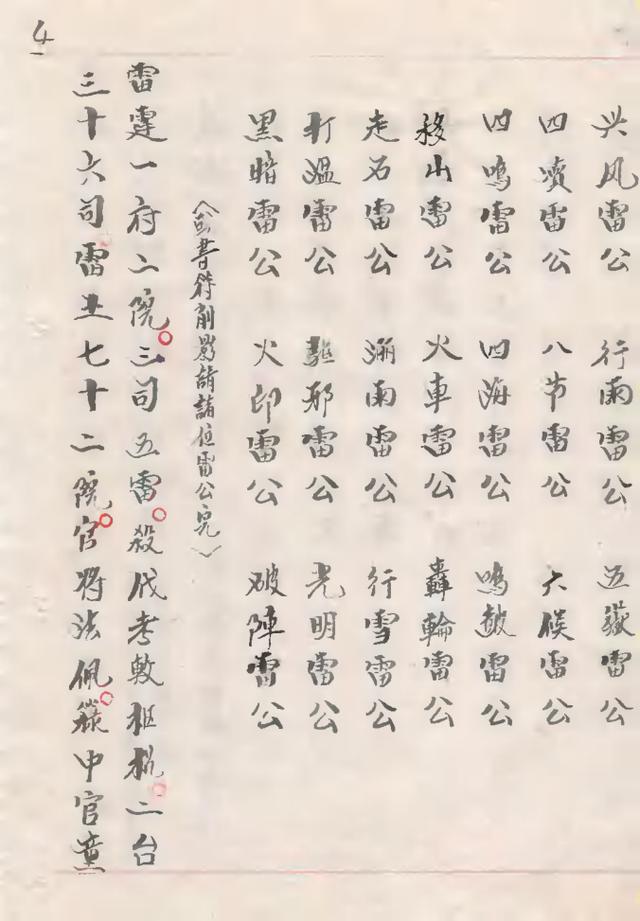 4
兴风雷公 行雨雷公 五嶽雷公
四渎雷公 八节雷公 六候雷公
四鸣雷公 四海雷公 鸣鼓雷公
移山雷公 火車雷公 轟輪雷公
走石雷公 涌雨雷公 行雪雷公
打瘟雷公 驅邪雷公 光明雷公
黑暗雷公 火印雷公 破陣雷公
書符前 請諸位雷公完
雷霆一府二院三司五雷殺伐考 二台
三十六司雷 七十二院官将法佩籙中官